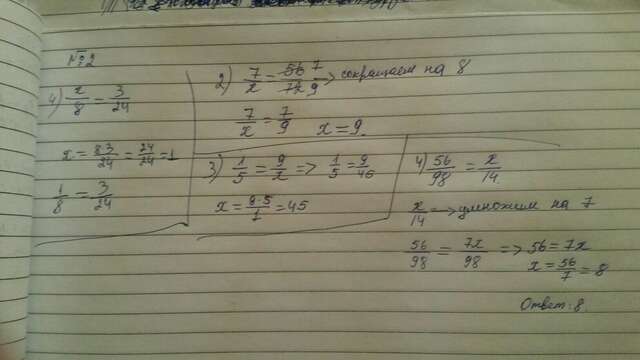 №2
1) x/8 = 3/24
x = 8·3/24 = 24/24 = 1
1/8 = 3/24
2) 7/x = 56/72 7/9 => сокращаем на 8
7/x = 7/9 x = 9.
3) 1/5 = 9/x => 1/5 = 9/46
x = 9·5/1 = 45
4) 56/98 = x/14
x/14 => умножим на 7
56/98 = 7x/98 => 56 = 7x
x = 56/7 = 8
Ответ: 8.